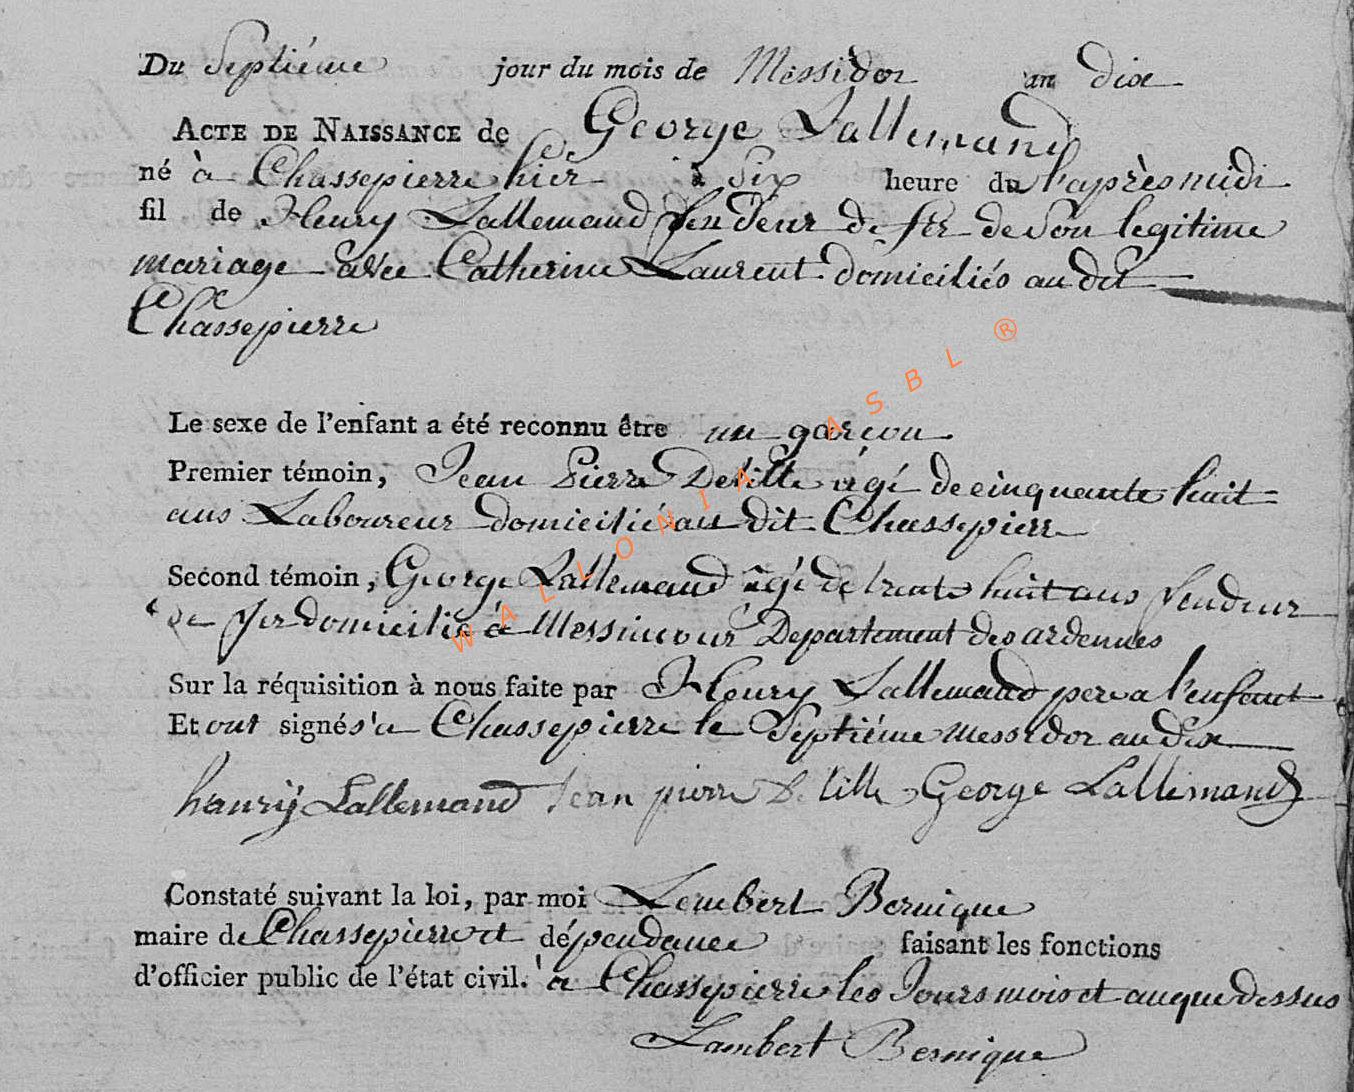 Du Septiéme jour du mois de Messidor an dix
ACTE DE NAISSANCE de George Lallemand
né à Chassepierre hier à Six heure du l'après midi
fil de Henry Lallemand fendeur de fer de Son legitime
mariage avec Catherine Laurent domiciliés au dit
Chassepierre
Le sexe de l'enfant a été reconnu être un garcon
Premier témoin, Jean Pierre Delille agé de cinquante huit
ans Laboureur domicilié au dit Chassepierre
Second témoin, George Lallemand agé de trente huit ans fendeur
de fer domicilié à Messincour Departement des ardennes
Sur la réquisition à nous faite par Henry Lallemand pere a l'enfant
Et ont signés a Chassepierre le Septiéme Messidor an dix
henry Lallemand Jean pierre Delille George Lallemand
Constaté suivant la loi, par moi Lembert Bernique
maire de Chassepierre et dépendance faisant les fonctions
d'officier public de l'état civil. à Chassepierre les Jours mois et an que dessus
Lambert Bernique
WALLONIA ASBL ®